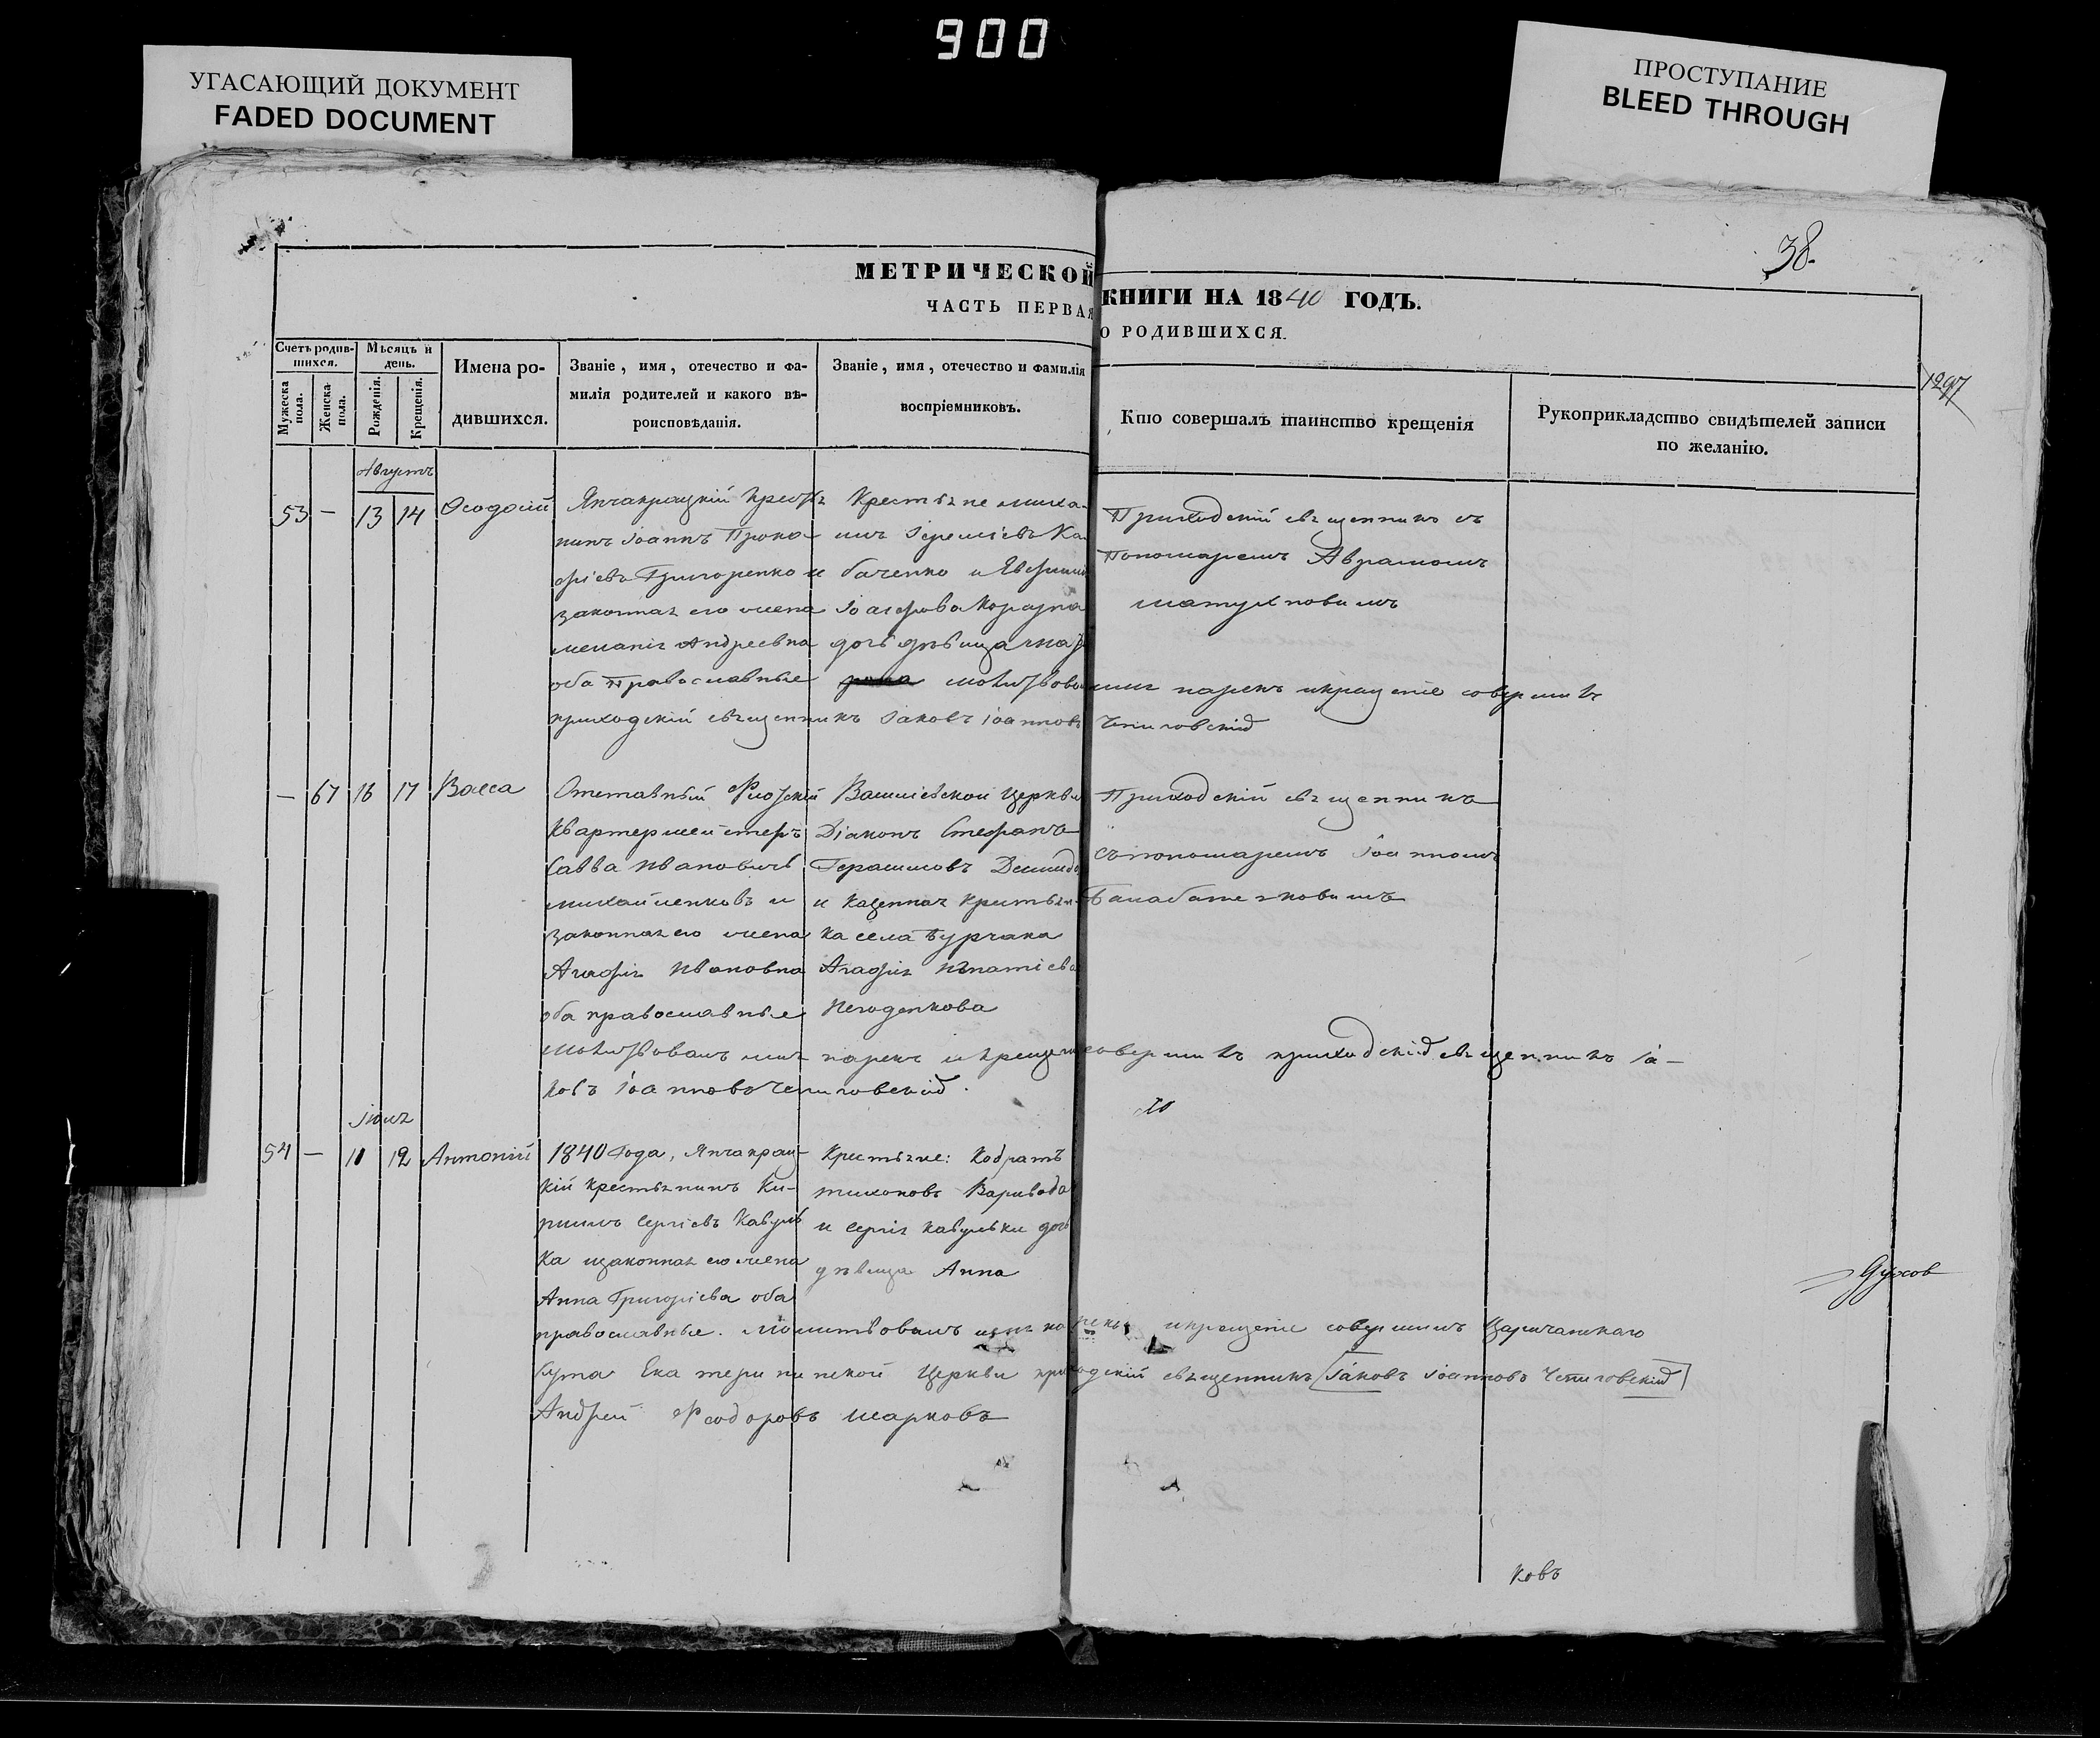 900
УГАСАЮЩИЙ ДОКУМЕНТ
FADED DOCUMENT
ПРОСТУПАНИЕ
BLEED THROUGH
38.
МЕТРИЧЕСКОЙ КНИГИ НА 1840 ГОДЪ.
ЧАСТЬ ПЕРВАЯ О РОДИВШИХСЯ.
1297
Счетъ родившихся.
Мужеска пола.
Женска пола.
Мѣсяцъ и день.
Рожденія.
Крещенія.
Имена родившихся.
Званіе, имя, отечество и фамилія родителей и какого вѣроисповѣданія.
Званіе, имя, отечество и фамилія воспріемниковъ.
Кто совершалъ таинство крещенія
Рукоприкладство свидѣтелей записи по желанію.
Августъ
53 — 13 14 Ѳеодосій
Янчакрацкій крестья
нинъ Іоаннъ Проко
фіевъ Григоренко и
законная его жена
Меланія Андреевна
оба православные
Крестьяне Миха
илъ Іереміевъ Ка
баченко и Евфими
дочь дѣвица
Приходскій священникъ съ
Пономаремъ Авраамомъ
нарекъ и крещеніе совершилъ
приходскій священникъ Іаковъ Іоанновъ
— 67 16 17 Васса
Отставный Флотскій
Квартермейстеръ
Савва Ивановичъ
Михайленковъ и
законная его жена
Агафія Ивановна
оба православные
Васильевской Церкви
Діаконъ Стефанъ
Герасимовъ
и казенная крестьян
ка села Бурчака
Агафія Игнатіева
Приходскій священникъ
съ пономаремъ Іоанномъ
Балабаненковымъ
Молитвовалъ имя нарекъ и крещеніе совершилъ приходскій священникъ Іа-
ковъ Іоанновъ
Іюля
54 — 11 12 Антоній
1840 Года, Янчакрац-
кій крестьянинъ Ки-
риллъ Сергіевъ
ка и законная его жена
Анна Григоріева оба
Крестьяне: Кодратъ
Тихоновъ Варивода
и Сергія дочь
дѣвица Анна
православные. Молитвовалъ имя нарекъ и крещеніе совершилъ Царичанскаго
Екатерининской Церкви приходскій священникъ Іаковъ Іоанновъ
Андрей Феодоровъ Марковъ
ковъ